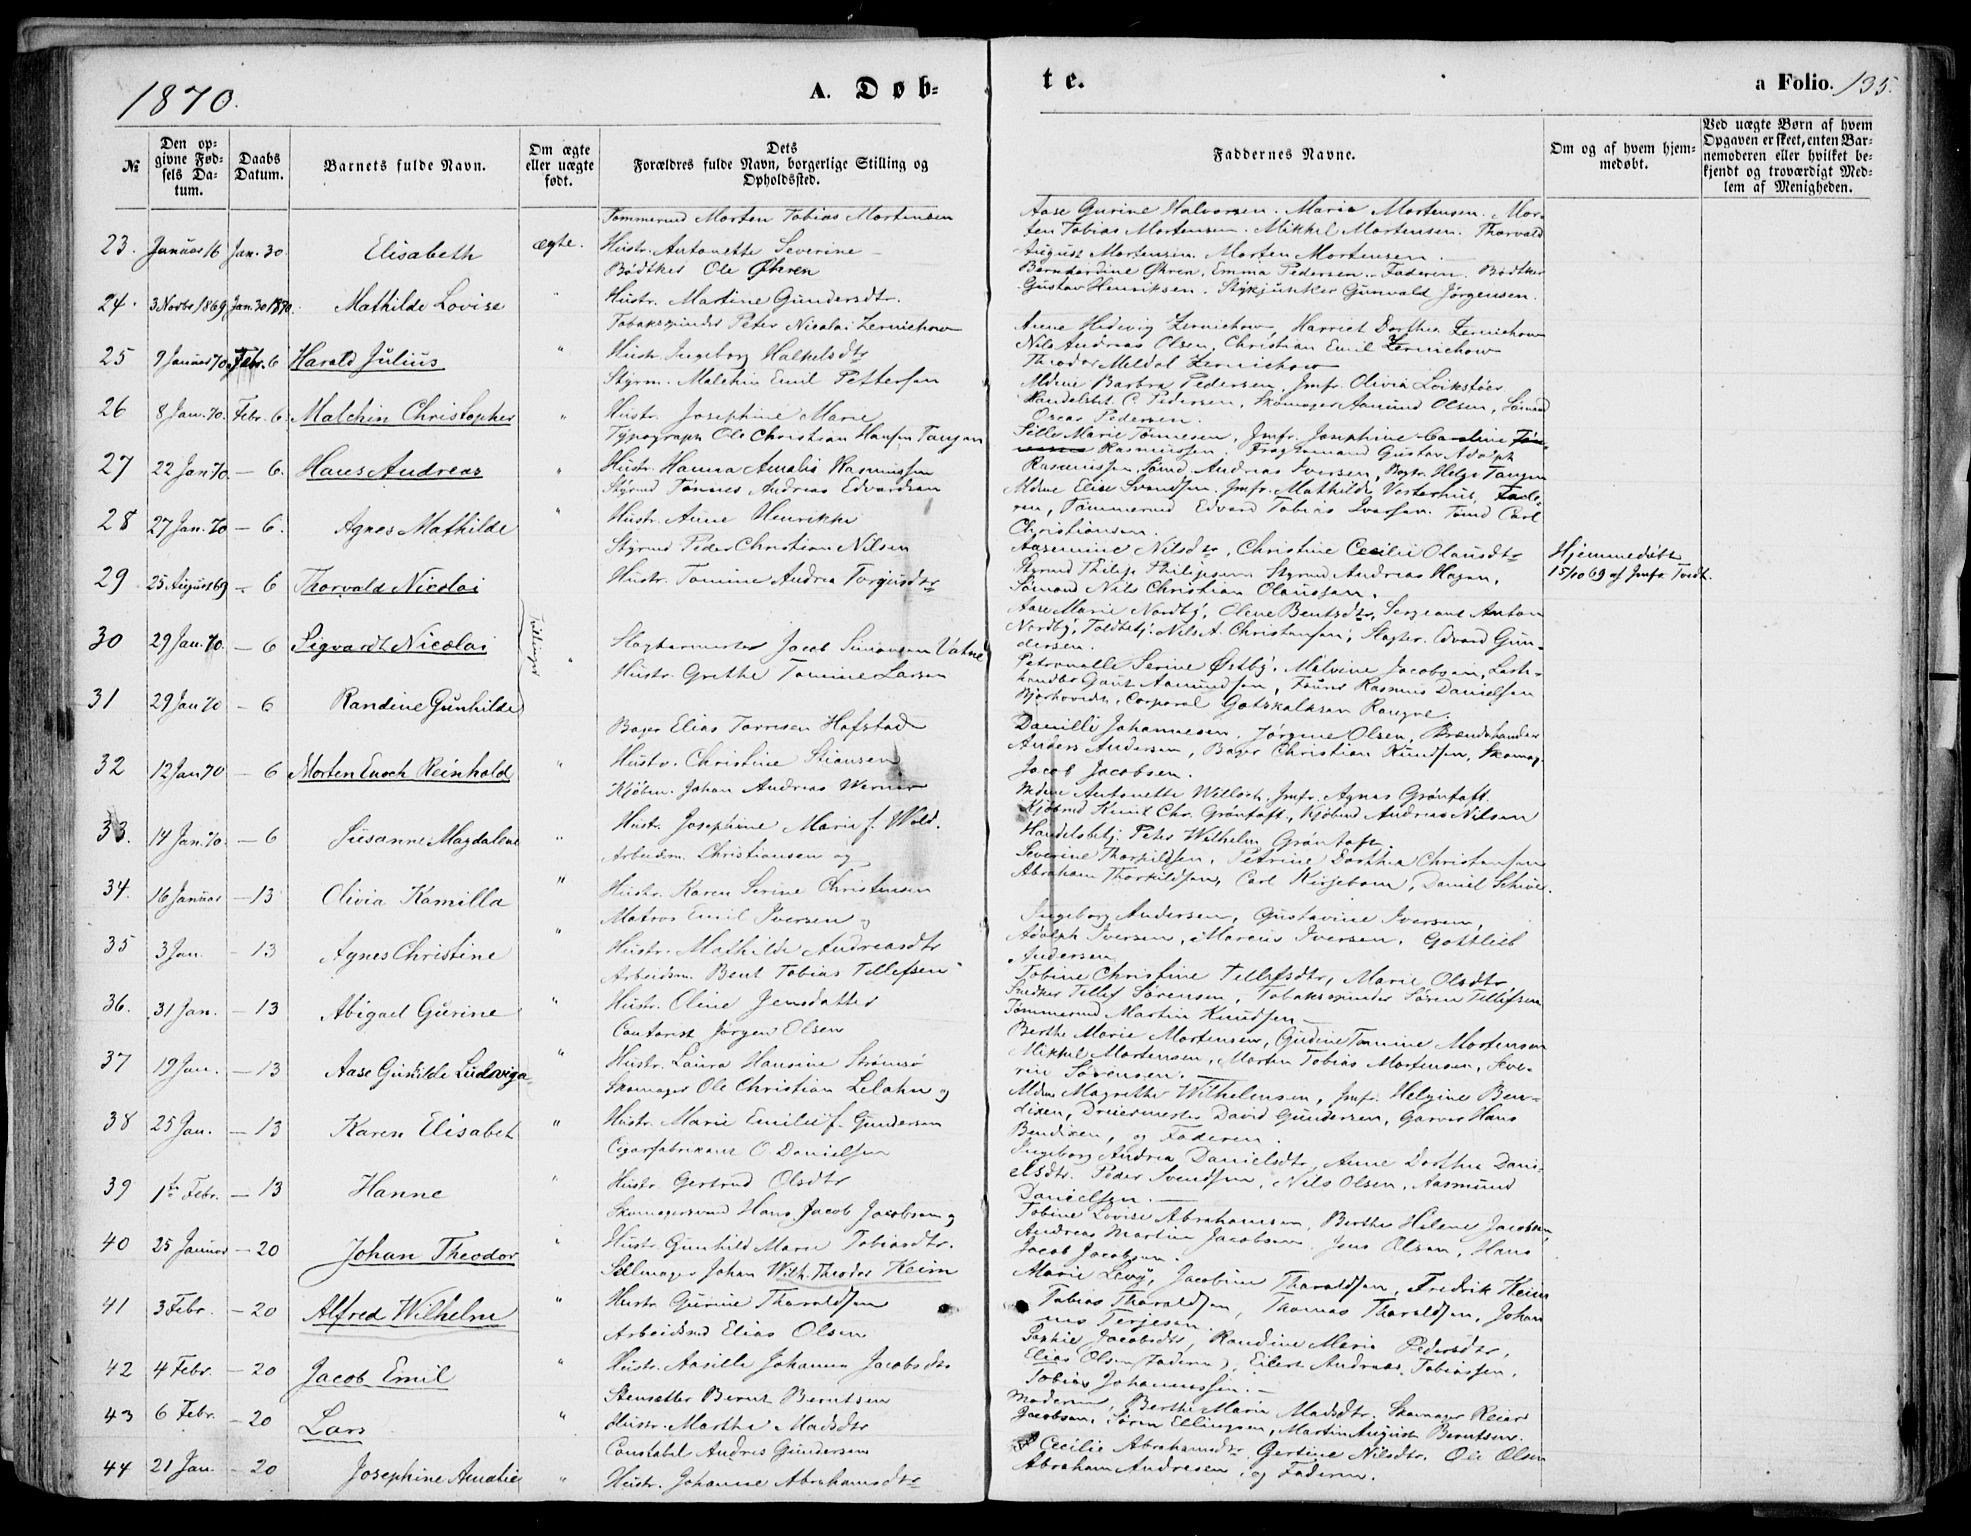 1870.
A. Døb-
te.
a Folio. 135.
№
Den op-
givne Fød-
sels Da-
tum.
Daabs
Datum.
Barnets fulde Navn.
Om ægte
eller uægte
født.
Dets
Forældres fulde Navn, borgerlige Stilling og
Opholdssted.
Faddernes Navne.
Om og af hvem hjem-
medøbt.
Ved uægte Børn af hvem
Opgaven er skeet, enten Bar-
nemoderen eller hvilket be-
kjendt og troværdigt Med-
lem af Menigheden.
Tømmermd Morten Tobias Mortensen
23. Januar 16 Jan. 30. Elisabeth ægte. Hustr. Antonette Severine
Aase Gurine Halvorsen. Maria Mortensen. Mor-
ten Tobias Mortensen. Mikkel Mortensen. Thorvald
August Mortensen. Morten Mortensen.
Bødtker Ole Øhren
24. 3 Novbr 1869 Jan. 30 1870. Mathilde Lovise " Hustr. Martine Gundersdtr.
Berntardine Øhren, Emma Pedersen. Faderen. Bødtker
Gustav Henriksen. Stykjunker Gunvald Jørgensen.
Tobakspinder Peter Nicolai Zernichow
25 9 Januar 70 Febr. 6 Harald Julius " Hustr. Ingeborg Halkelsdtr
Anne Hedevig Zernichow, Harriet Dorthea Zernichow
Nils Andreas Olsen, Christian Emil Zernichow
Theodor Meldal Zernichow
Styrm. Malchin Emil Pettersen
26 8 Jan. 70. Febr. 6 Malchin Christopher " Hustr. Josephine Marie
Mdme Barbra Pedersen, Jmfr. Olivia
Handelsbt. C. Pedersen, Skomager Aamund Olsen, Sømand
Oscar Pedersen.
Typograph Ole Christian Hansen Tangen
27 22 Jan 70. – 6. Hans Andreas " Hustr. Hanna Amalia Rasmussen
Sille Marie Tønnesen, Jmfr. Josephine Caroline
Rasmussen, Fragtmand Gustav Adolph
Rasmussen, Sømd. Andreas Iversen, Bogtr. Helge Tangen
Styrmd Tønnes Andreas Edvardsen
28 27 Jan. 70 – 6. Agnes Mathilde " Hustr. Anne Henrikke
Mdme Elise Svendsen. Jmfr. Mathilde Vesterhus, Fade-
ren, Tømmermd Edvard Tobias Iversen. Tømd Carl
Christiansen.
Styrmd Peder Christian Nilsen
29 25 August 69 – 6 Thorvald Nicolai Hustr. Tomine Andrea Torjusdtr
Aasemine Nilsdtr, Christine Cecilie Olausdtr
Styrmd Philip Philipsen. Styrmd Andreas Hagen,
Sømand Nils Christian Olaussen.
Hjemmedøbt
15/10 69 af Jmfr. Tvedt.
30 29 Jan. 70. – 6 Sigvardt Nicolai Tvillinger " Slagtermester Jacob Simonsen Vatne
Hustr. Grethe Tomine Larsen
Aase Marie Nordby, Olene Bentsdtr, Sergeant Anton
Nordby, Toldbetj. Nils A. Christensen, Slagter Edvard Gun-
dersen.
31 29 Jan 70 – 6 Randine Gunhilde
Petronelle Serine Østby, Malvine Jacobsen, Læder-
handler Gaut Aamundsen, Rasmus Danielsen
Bjorhovde, Corporal Gotskalksen Rongve.
Bager Elias Torresen Hafstad
32 12 Jan 70 – 6 Morten Enoch Reinhold " Hustr. Christine Stiansen,
Danielle Johannesen, Jørgine Olsen, Brændehandler
Anders Andersen, Bager Christian Knudsen, Skomag.
Jacob Jacobsen.
Kjøbm. Johan Andreas Werner
33. 14 Jan. 70. – 6 Susanne Magdalene " Hustr. Josephine Marie f. Wold.
Mdme Antonette Willoch, Jmfr. Agnes Grøntoft.
Kjøbmd Knut Chr. Grøntoft, Kjøbmd Andreas Nilsen
Handelsbetj. Peter Wilhelm Grøntoft.
Arbeidsm. Christiansen og
34. 16 Januar – 13 Olivia Kamilla " Hustr. Karen Serine Christensen
Severine Thorkildsen, Petrine Dorthea Christensen
Abraham Thorkildsen, Carl Kirjebom, Daniel
Matros Emil Iversen og
35 3 Jan. – 13 Agnes Christine " Hustr. Mathilde Andreasdtr
Ingeborg Andersen, Gustavine Iversen,
Adolph Iversen, Marcus Iversen, Gottlieb
Andersen
Arbeidsm. Bent Tobias Tellefsen
36. 31 Jan. – 13 Abigael Gurine " Hustr. Oline Jensdatter
Tobine Christine Tellefsdtr, Marie Olsdtr
Snedker Tellef Sørensen, Tobakspinder Søren Tellefsen
Tømmermd Martin Knudsen
Contorist Jørgen Olsen
37 19 Jan. – 13 Aase Gunhilde Ludoviga " Hustr. Laura Hansine Strømsø
Berthe Marie Mortensen, Gudine Tomine Mortensen
Mikkel Mortensen, Morten Tobias Mortensen, Seve-
rin Sørensen.
Skomager Ole Christian Lelahn og
38 25 Jan. – 13 Karen Elisabet " Hustr. Marie Emilie f. Gundersen
Mdme Magrethe Wilhelmsen, Jmfr. Helgine Ben-
dixen, Dreiermester David Gundersen, Garver Hans
Bendixen, og Faderen.
Cigarfabrikant O. Danielsen
39 1ste Febr. – 13 Hanne " Hustr. Gertrud Olsdtr
Ingeborg Andrea Danielsdtr, Anne Dorthea Dani-
elsdtr. Peder Svendsen, Nils Olsen, Aasmund
Danielsen.
Skomagersvend Hans Jacob Jacobsen og
40 25 Januar – 20 Johan Theodor " Hustr. Gunhild Marie Tobiasdtr.
Tobine Lovise Abrahamsen, Berthe Helene Jacobsen,
Andreas Martin Jacobsen. Jens Olsen, Hans
Jacob Jacobsen
Sælmager Johan Wilh. Theodor Keim
41 3 Febr. – 20 Alfred Wilhelm " Hustr. Gurine Tharaldsen
Marie Levy, Jacobine Tharaldsen, Fredrik Keim
Tobias Tharaldsen, Thomas Tharaldsen, Johan
nes Terjesen
Arbeidsmd Elias Olsen
42 4 Febr. – 20 Jacob Emil " Hustr. Aasille Johanna Jacobsdtr
Sophie Jacobsdtr, Randine Marie Pedersdtr,
Elias Olsen (Faderen), Eilert Andreas Tobiassen,
Tobias Johannessen.
Stensætter Bernt Berntsen
43 6 Febr. – 20 Lars " Hustr. Marthe Madsdtr
Moderen, Berthe Marie Madsdtr. Skomager Reier
Jacobsen, Søren Ellingsen, Martin August Berntsen.
Constabel Andres Gundersen
44 21 Jan. – 20 Josephine Amalie " Hustr. Johanne Abrahamsdtr
Cecilie Abrahamsdtr, Gertine Nilsdtr. Ole Olsen
Abraham Andresen, og Faderen.